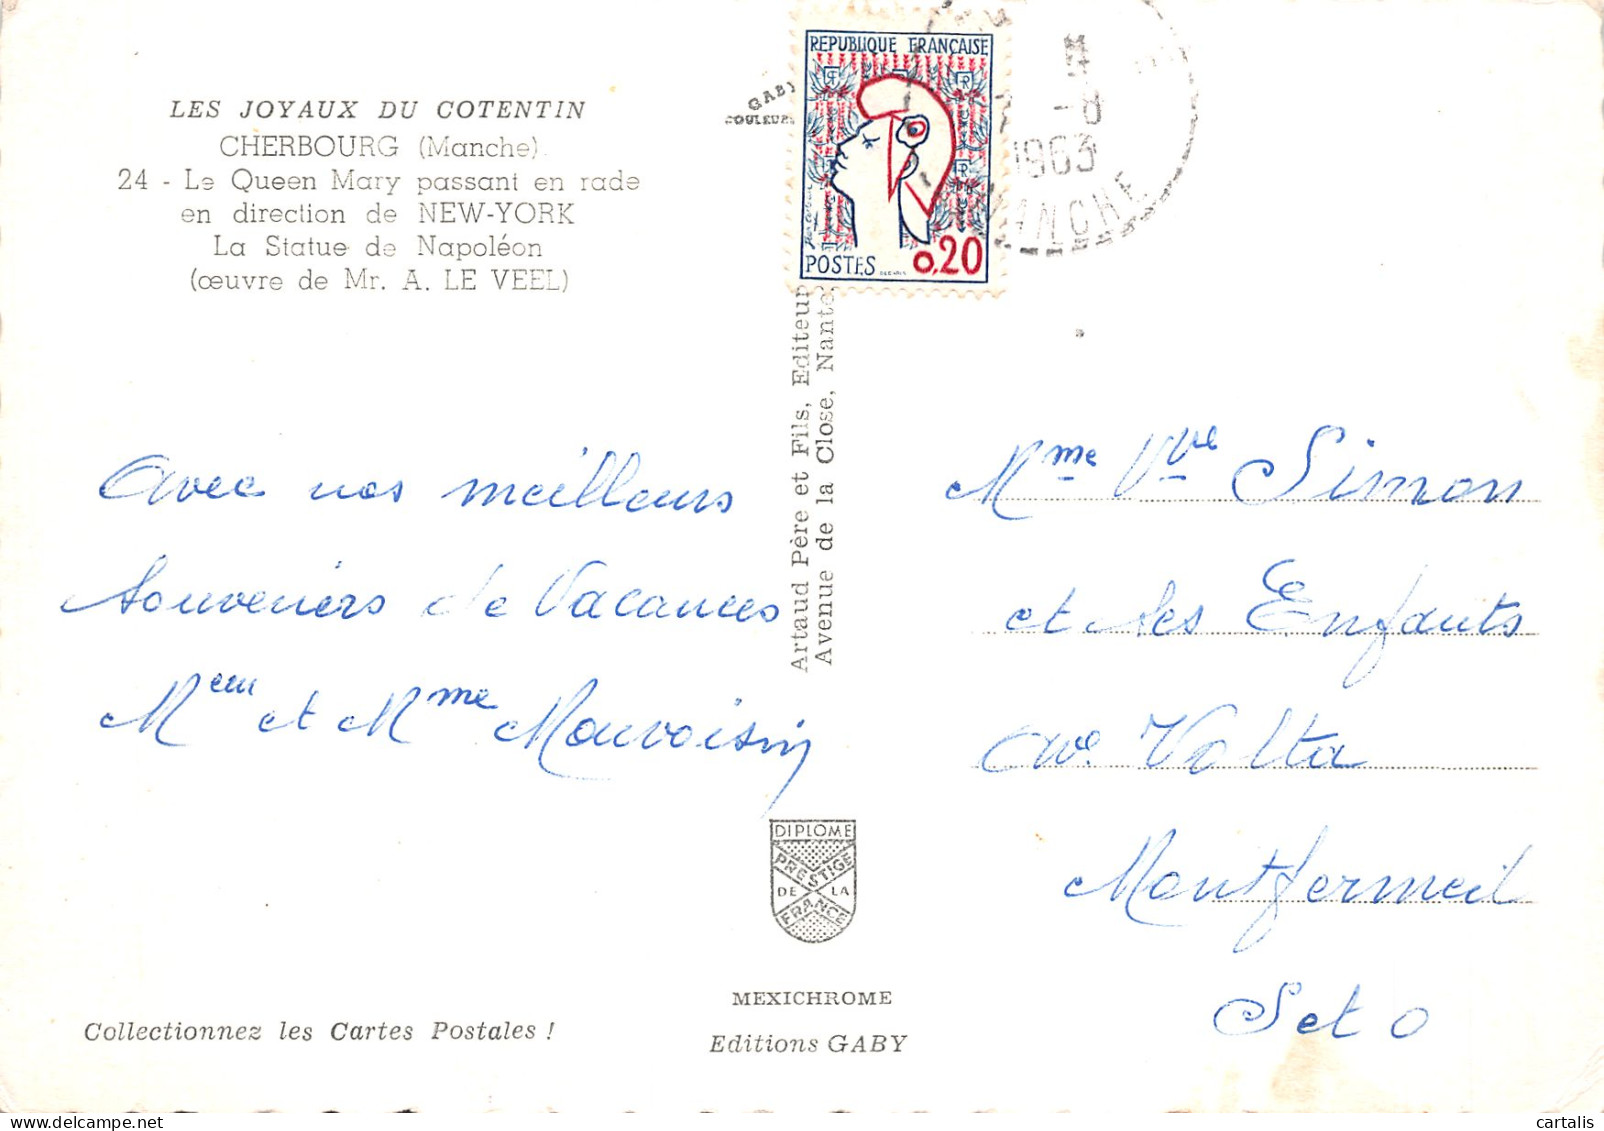 LES JOYAUX DU COTENTIN
CHERBOURG (Manche)
24 - Le Queen Mary passant en rade
en direction de NEW-YORK
La Statue de Napoléon
(œuvre de Mr. A. LE VEEL)
GABY
COULEURS
REPUBLIQUE FRANÇAISE
RF
POSTES 0,20
-8
1963
MANCHE
Artaud Père et Fils, Editeur
Avenue de la Close, Nantes
avec nos meilleurs
souvenirs de Vacances
Meur et Mme Mauvoisin
Mme Vve Simon
et ses Enfants
ave Volta
Montfermeil
S et O
DIPLOME
PRESTIGE
DE LA
FRANCE
MEXICHROME
Editions GABY
Collectionnez les Cartes Postales !
cartalis